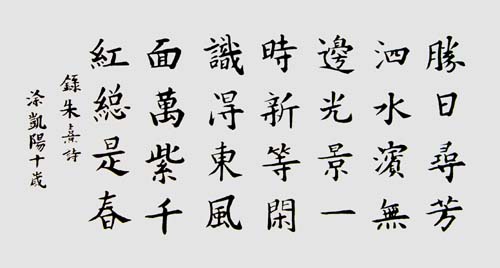 勝日尋芳
泗水濱無
邊光景一
時新等閑
識得東風
面萬紫千
紅總是春
錄朱熹詩
涂凱陽十歲